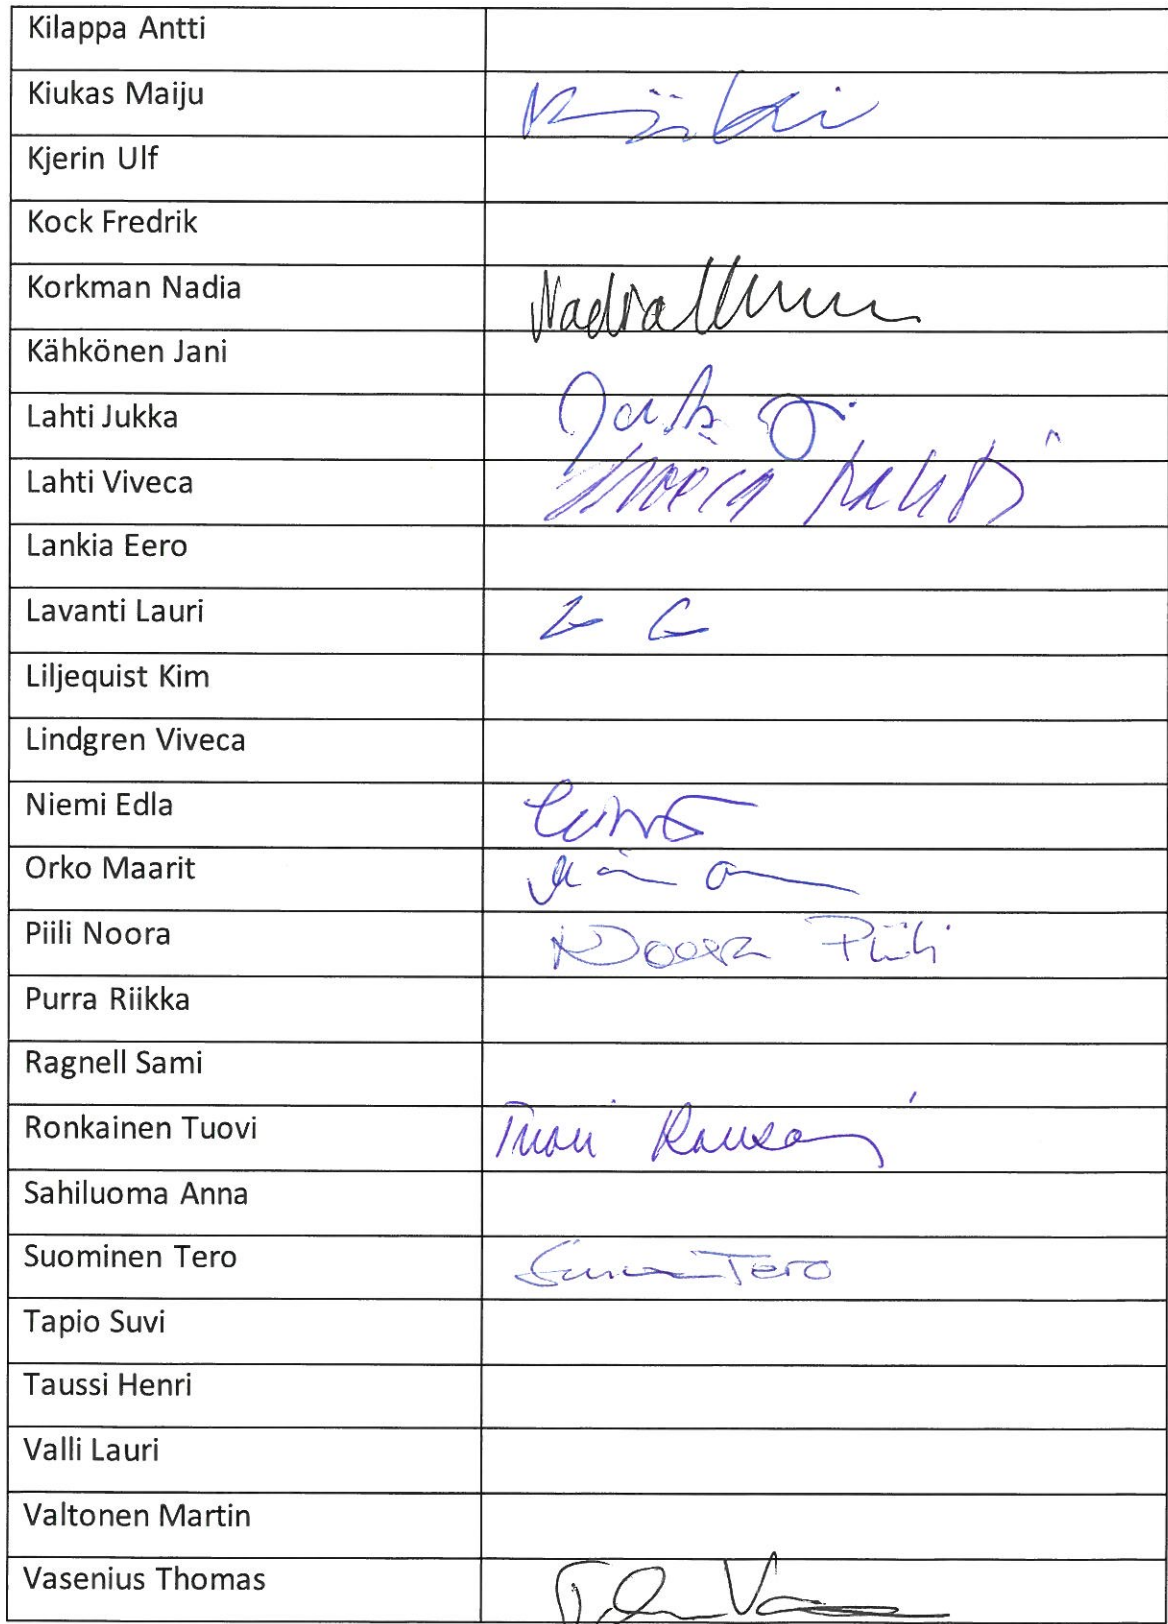 Kilappa Antti
Kiukas Maiju
Kjerin Ulf
Kock Fredrik
Korkman Nadia Nadia
Kähkönen Jani
Lahti Jukka
Lahti Viveca Viveca Lahti
Lankia Eero
Lavanti Lauri
Liljequist Kim
Lindgren Viveca
Niemi Edla
Orko Maarit
Piili Noora Noora Piili
Purra Riikka
Ragnell Sami
Ronkainen Tuovi Tuovi
Sahiluoma Anna
Suominen Tero Tero
Tapio Suvi
Taussi Henri
Valli Lauri
Valtonen Martin
Vasenius Thomas